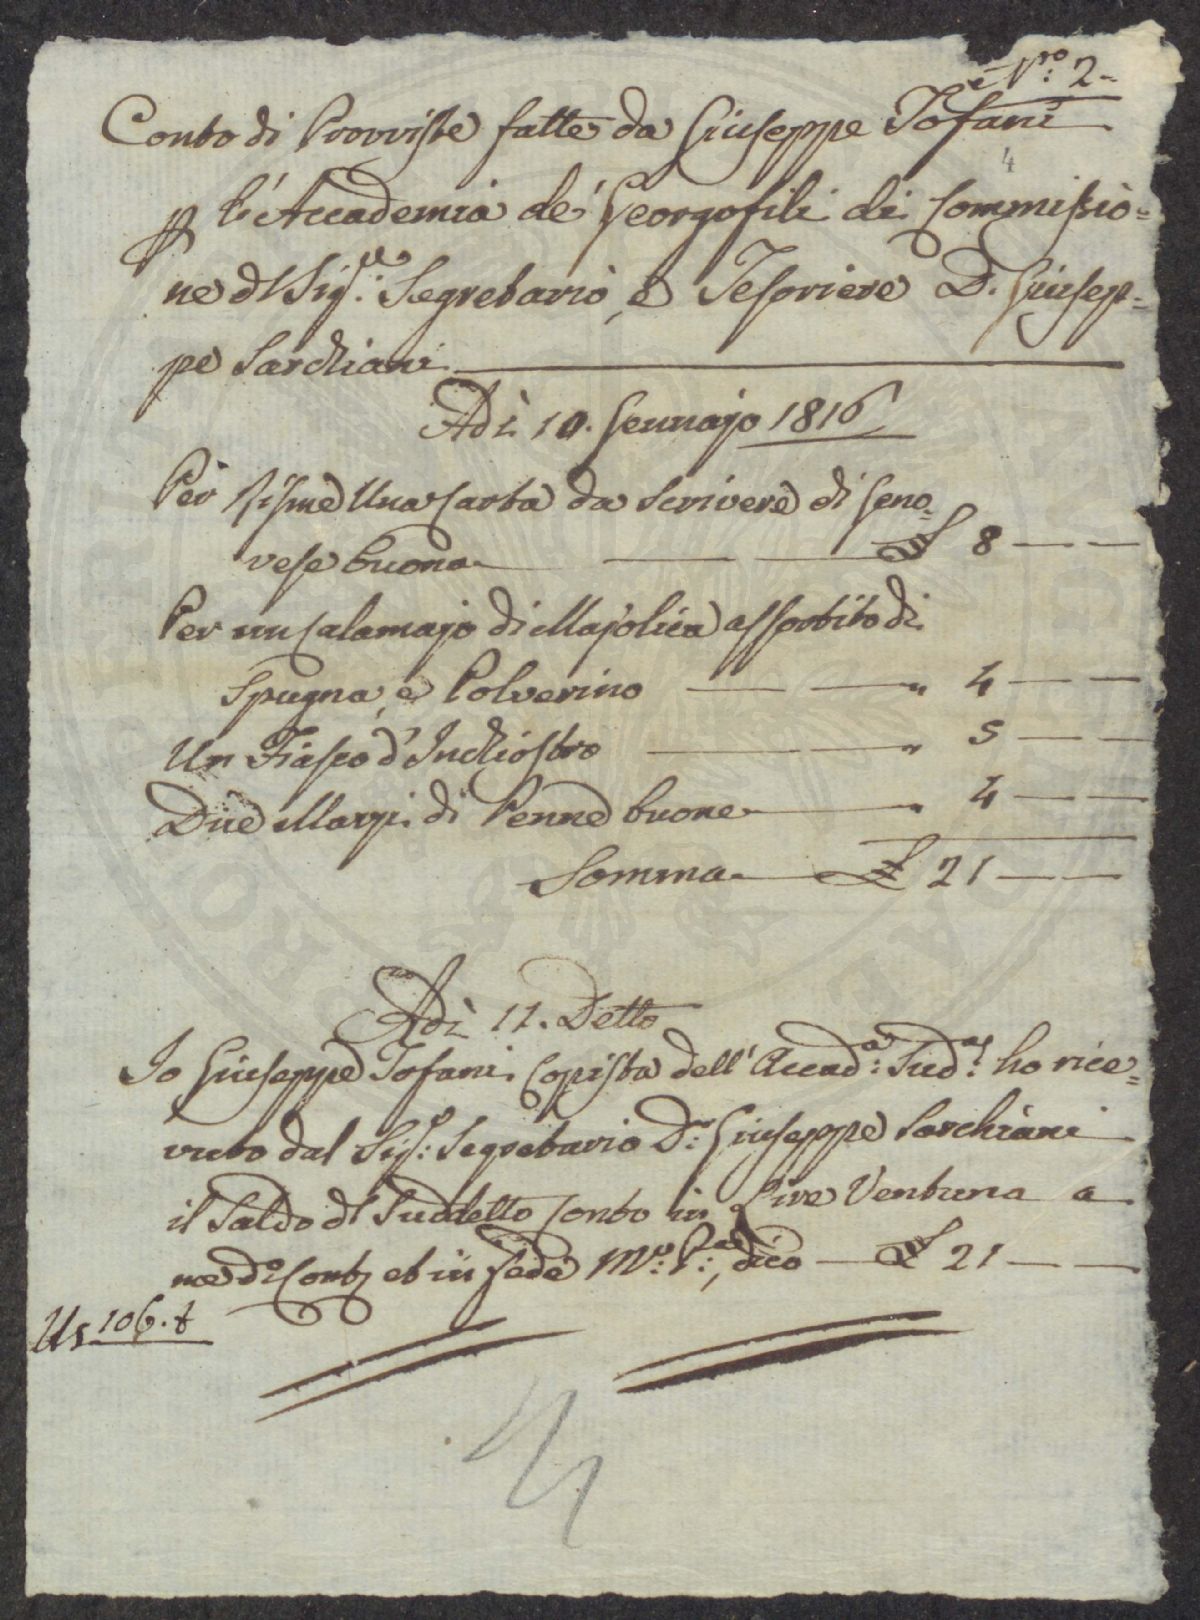 N.ro 2
Conto di Provviste fatte da Giuseppe Tofani
4
p l'Accademia de' Georgofili di Commissio=
ne dl Sig.re Segretario, e Tesoriere D. Giusep=
pe Sarchiani
Adì 10. Gennajo 1816
Per risme Una Carta da Scrivere di Geno=
vese buona £ 8
Per un Calamajo di Majolica assortito di
Spugna, e Polverino " 4
Un Fiasco d'Inchiostro " 5
Due Mazzi di Penne buone " 4
Somma £ 21
Adì 11. Detto
Io Giuseppe Tofani Copista dell'Accad.a Sud.a ho rice=
vuto dal Sig.r Segretario D.r Giuseppe Sarchiani
il Saldo dl Suddetto Conto in Lire Ventuna a
me d.i Conti et in fede M.o P.a, dico £ 21
Us 106. t